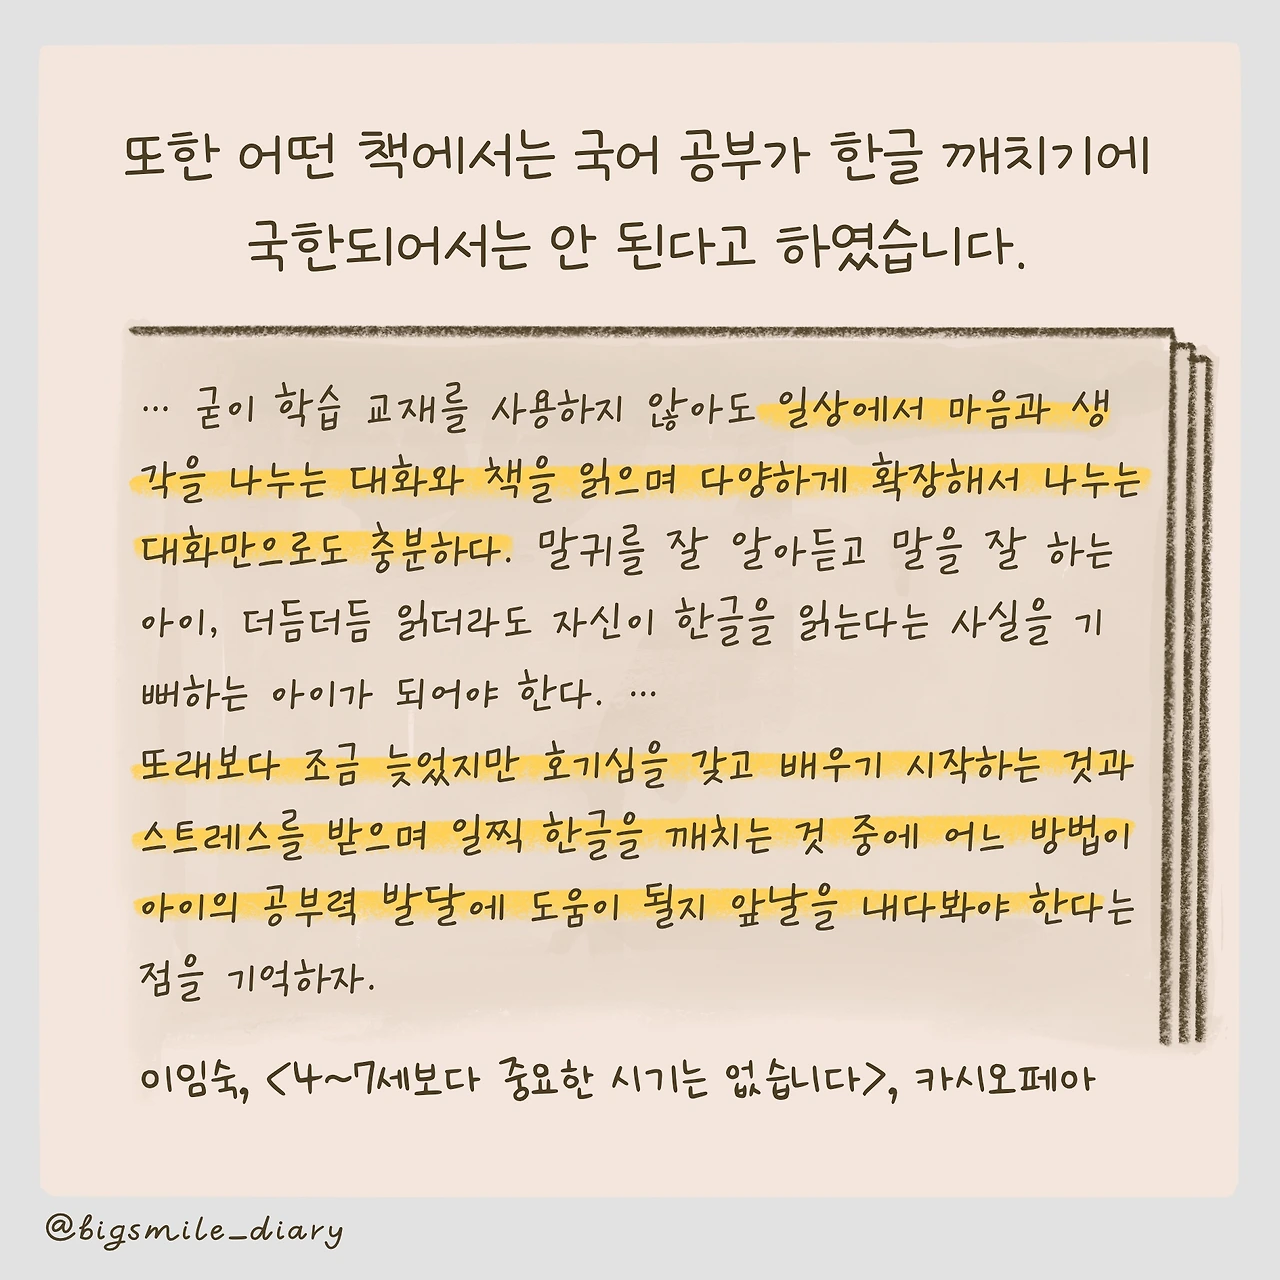 또한 어떤 책에서는 국어 공부가 한글 깨치기에
국한되어서는 안 된다고 하였습니다.
… 굳이 학습 교재를 사용하지 않아도 일상에서 마음과 생
각을 나누는 대화와 책을 읽으며 다양하게 확장해서 나누는
대화만으로도 충분하다. 말귀를 잘 알아듣고 말을 잘 하는
아이, 더듬더듬 읽더라도 자신이 한글을 읽는다는 사실을 기
뻐하는 아이가 되어야 한다. …
또래보다 조금 늦었지만 호기심을 갖고 배우기 시작하는 것과
스트레스를 받으며 일찍 한글을 깨치는 것 중에 어느 방법이
아이의 공부력 발달에 도움이 될지 앞날을 내다봐야 한다는
점을 기억하자.
이임숙, <4~7세보다 중요한 시기는 없습니다>, 카시오페아
@bigsmile_diary